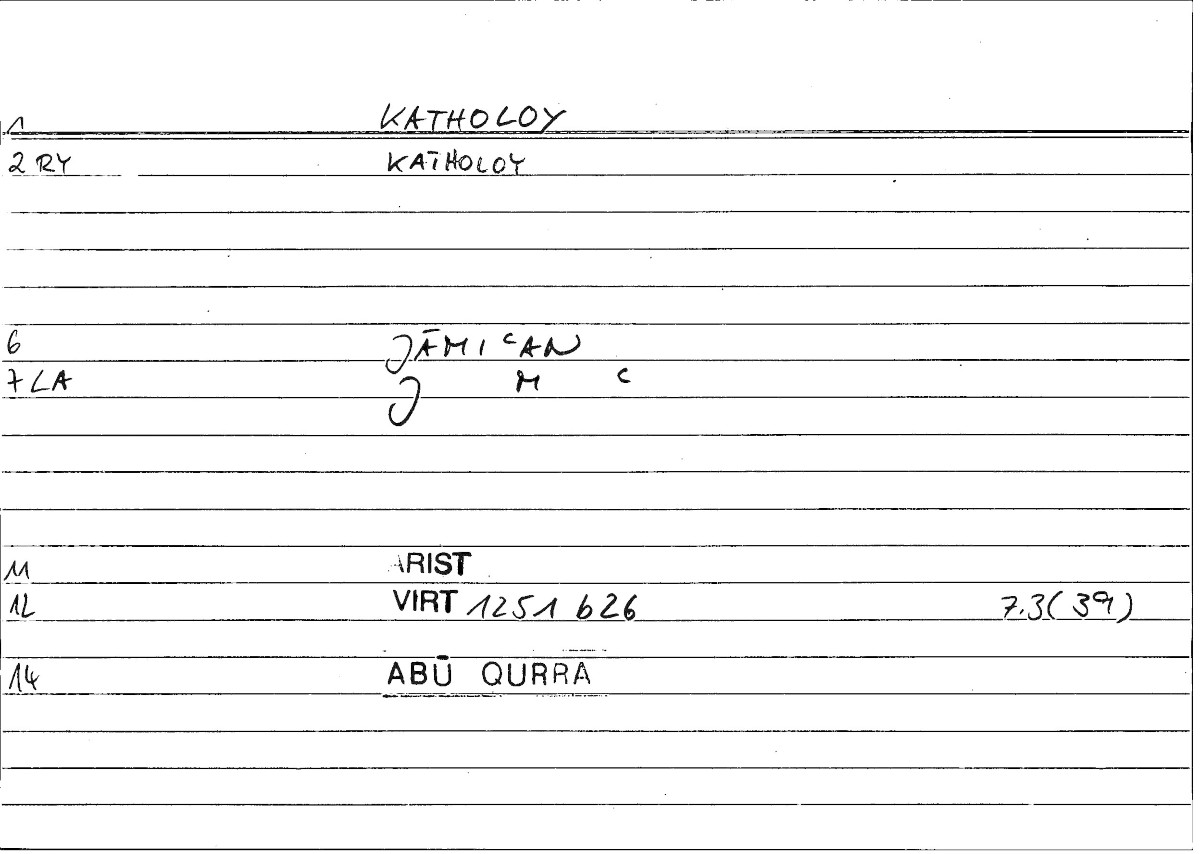 1 KATHOLOY
2 RY KATHOLOY
6 JĀMI ʿAN
7 LA J M ʿ
11 ARIST
12 VIRT 1251 b26 7.3(39)
14 ABŪ QURRA